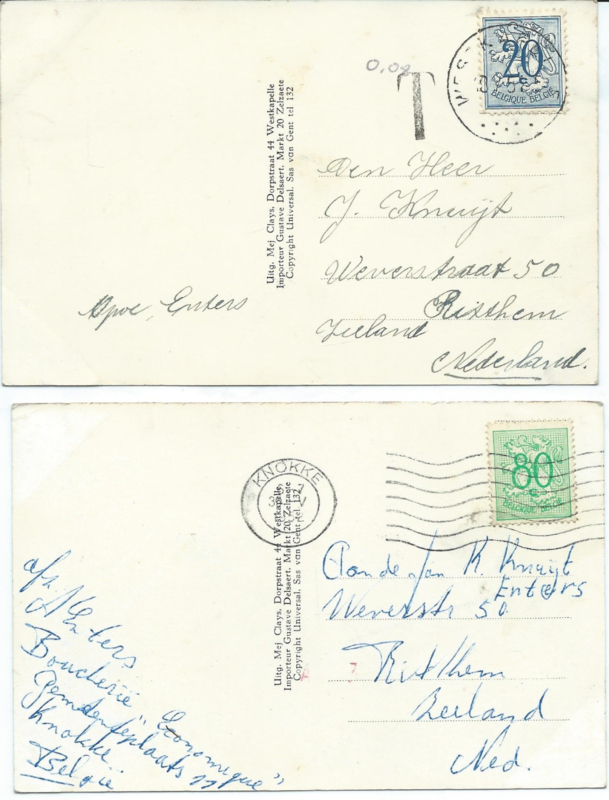 0.02
T
WEST
20
BELGIQUE-BELGIË
Uitg. Mej Clays, Dorpstraat 44 Westkapelle
Importeur Gustave Delsaert, Markt 20 Zelzaete
Copyright Universal. Sas van Gent tel 132
Den Heer
J. Knuijt
Weverstraat 50
Ritthem
Zeeland
Nederland.
Enters
KNOKKE
80
BELGIQUE-BELGIË
Uitg. Mej Clays, Dorpstraat 44 Westkapelle
Importeur Gustave Delsaert, Markt 20 Zelzaete
Copyright Universal. Sas van Gent tel 132
Aan de fam K. Knuijt
Enters
Weverstr 50
Ritthem
Zeeland
Ned.
afz. Enters
Boucherie "Economique"
Gemeenteplaats
Knokke
België